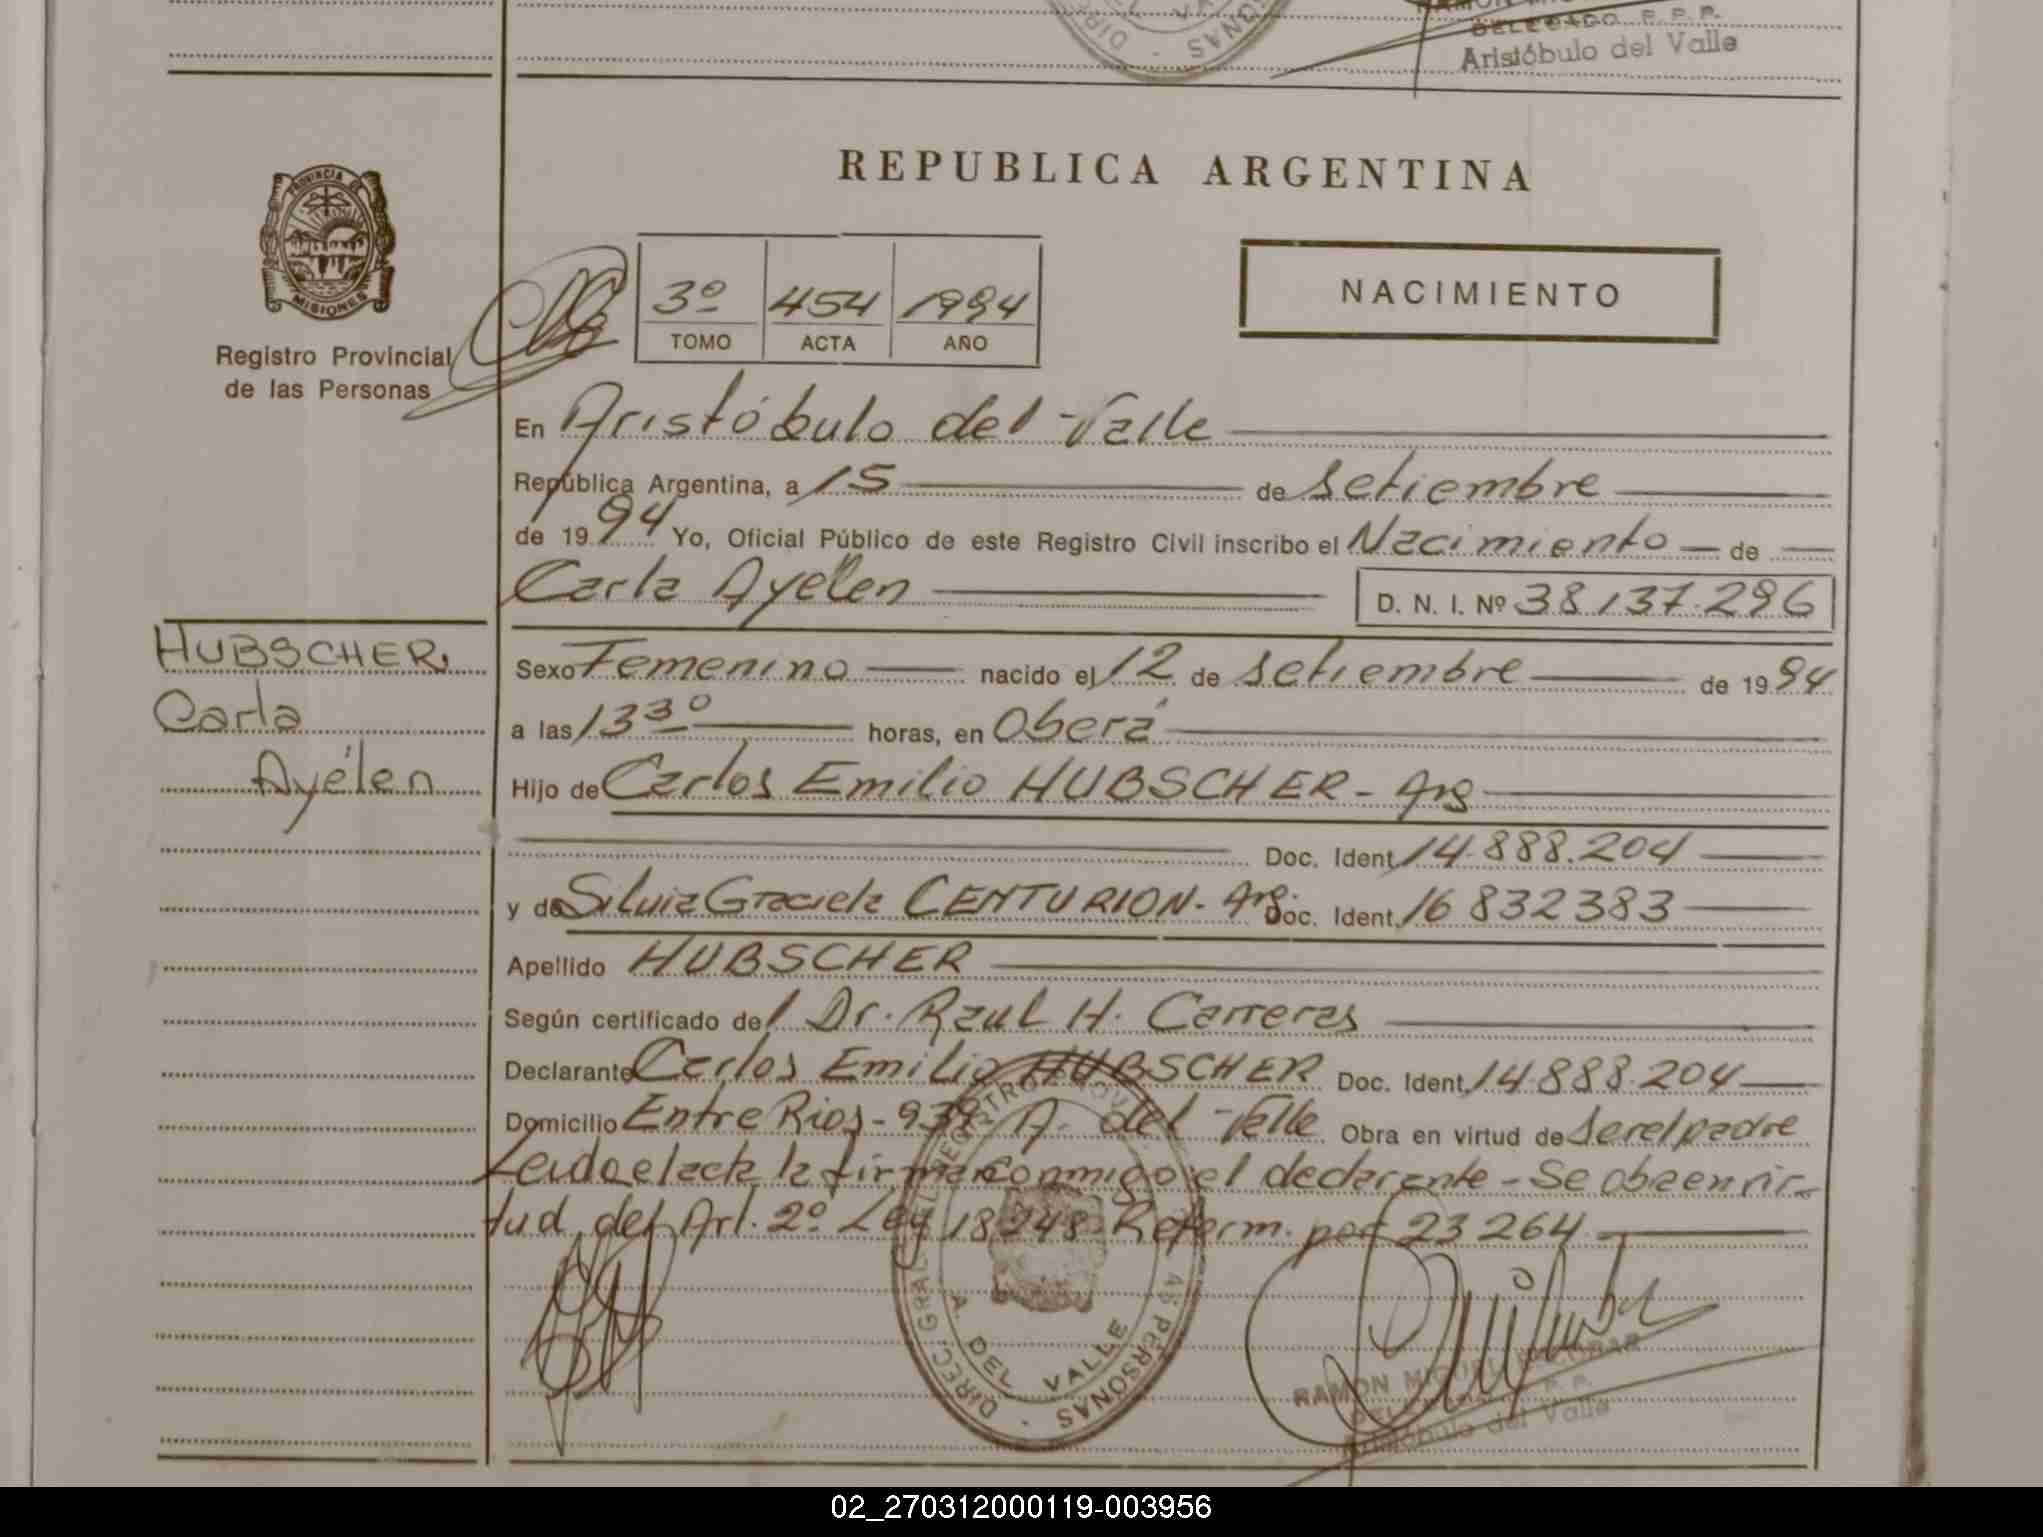 DELEGADO R. P. P.
Aristóbulo del Valle
PROVINCIA DE
MISIONES
Registro Provincial
de las Personas
REPUBLICA ARGENTINA
3º 454 1994
TOMO ACTA AÑO
NACIMIENTO
En Aristóbulo del Valle
República Argentina, a 15 de setiembre
de 1994 Yo, Oficial Público de este Registro Civil inscribo el Nacimiento de
Carla Ayelen D. N. I. Nº 38.137.296
HUBSCHER,
Carla
Ayélen
Sexo Femenino nacido el 12 de setiembre de 1994
a las 13 30 horas, en Oberá
Hijo de Carlos Emilio HUBSCHER - Arg
Doc. Ident. 14.888.204
y de Silvia Graciela CENTURION - Arg. Doc. Ident. 16 832 383
Apellido HUBSCHER
Según certificado del Dr. Raul H. Carreras
Declarante Carlos Emilio HUBSCHER Doc. Ident. 14.888.204
Domicilio Entre Rios - 939 A. del Valle Obra en virtud de ser el padre
Leida el acta la firma conmigo el declarante - Se obra en vir-
tud del Art. 2º Ley 18.248 - Reform. por 23 264
DIREC. GRAL. DEL REGISTRO PROV. DE LAS PERSONAS
A. DEL VALLE
RAMON MIGUEL ESCOBAR
Aristóbulo del Valle
02_270312000119-003956